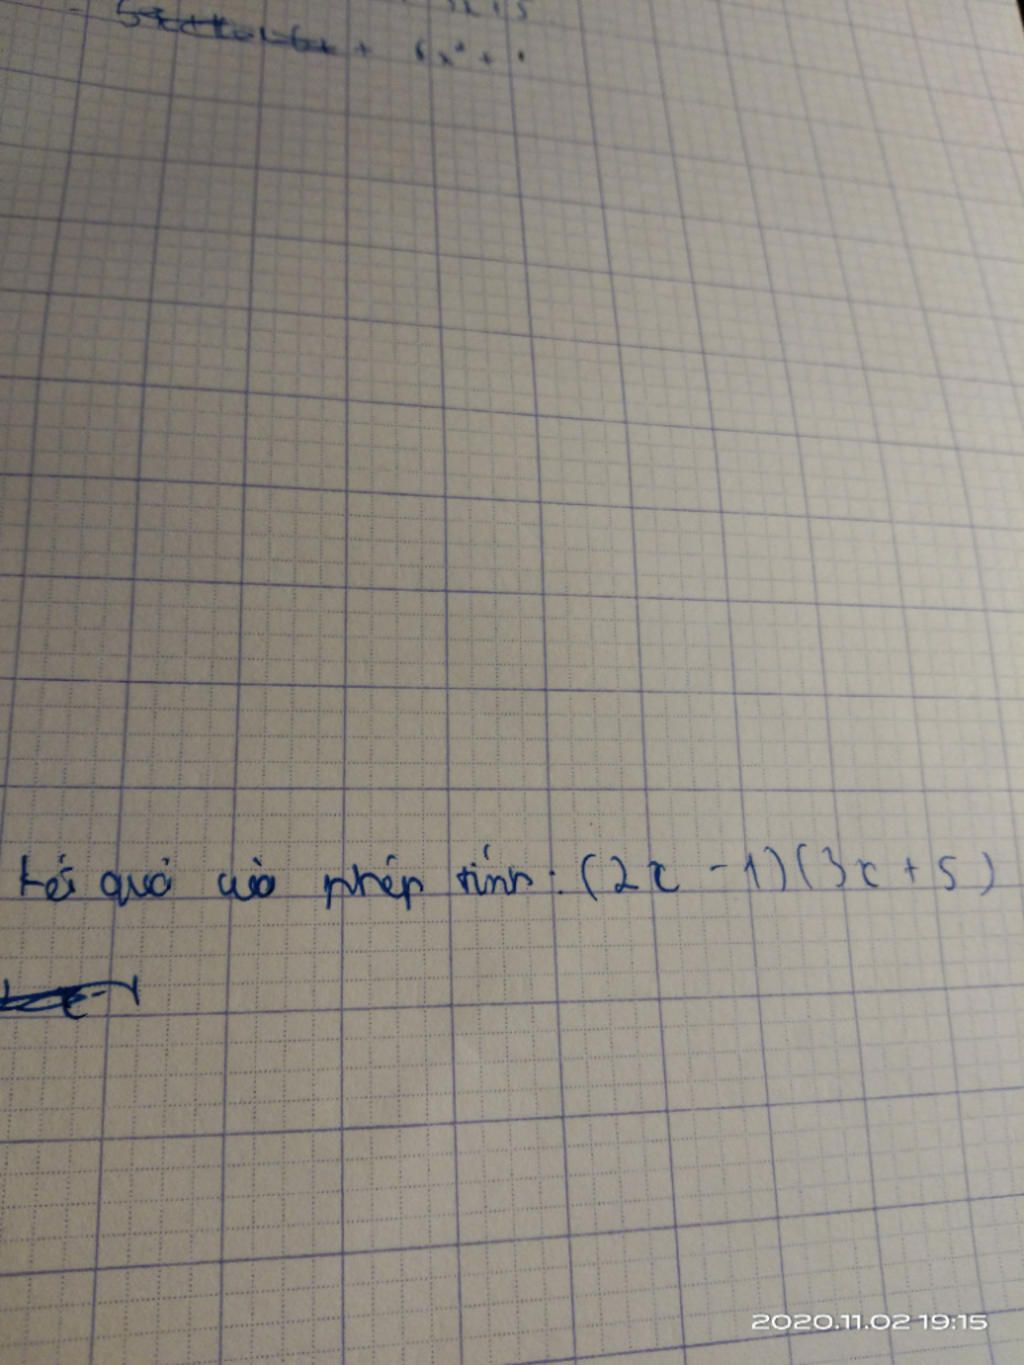 6x² +
kết quả của phép tính: (2x - 1)(3x + 5)
2020.11.02 19:15